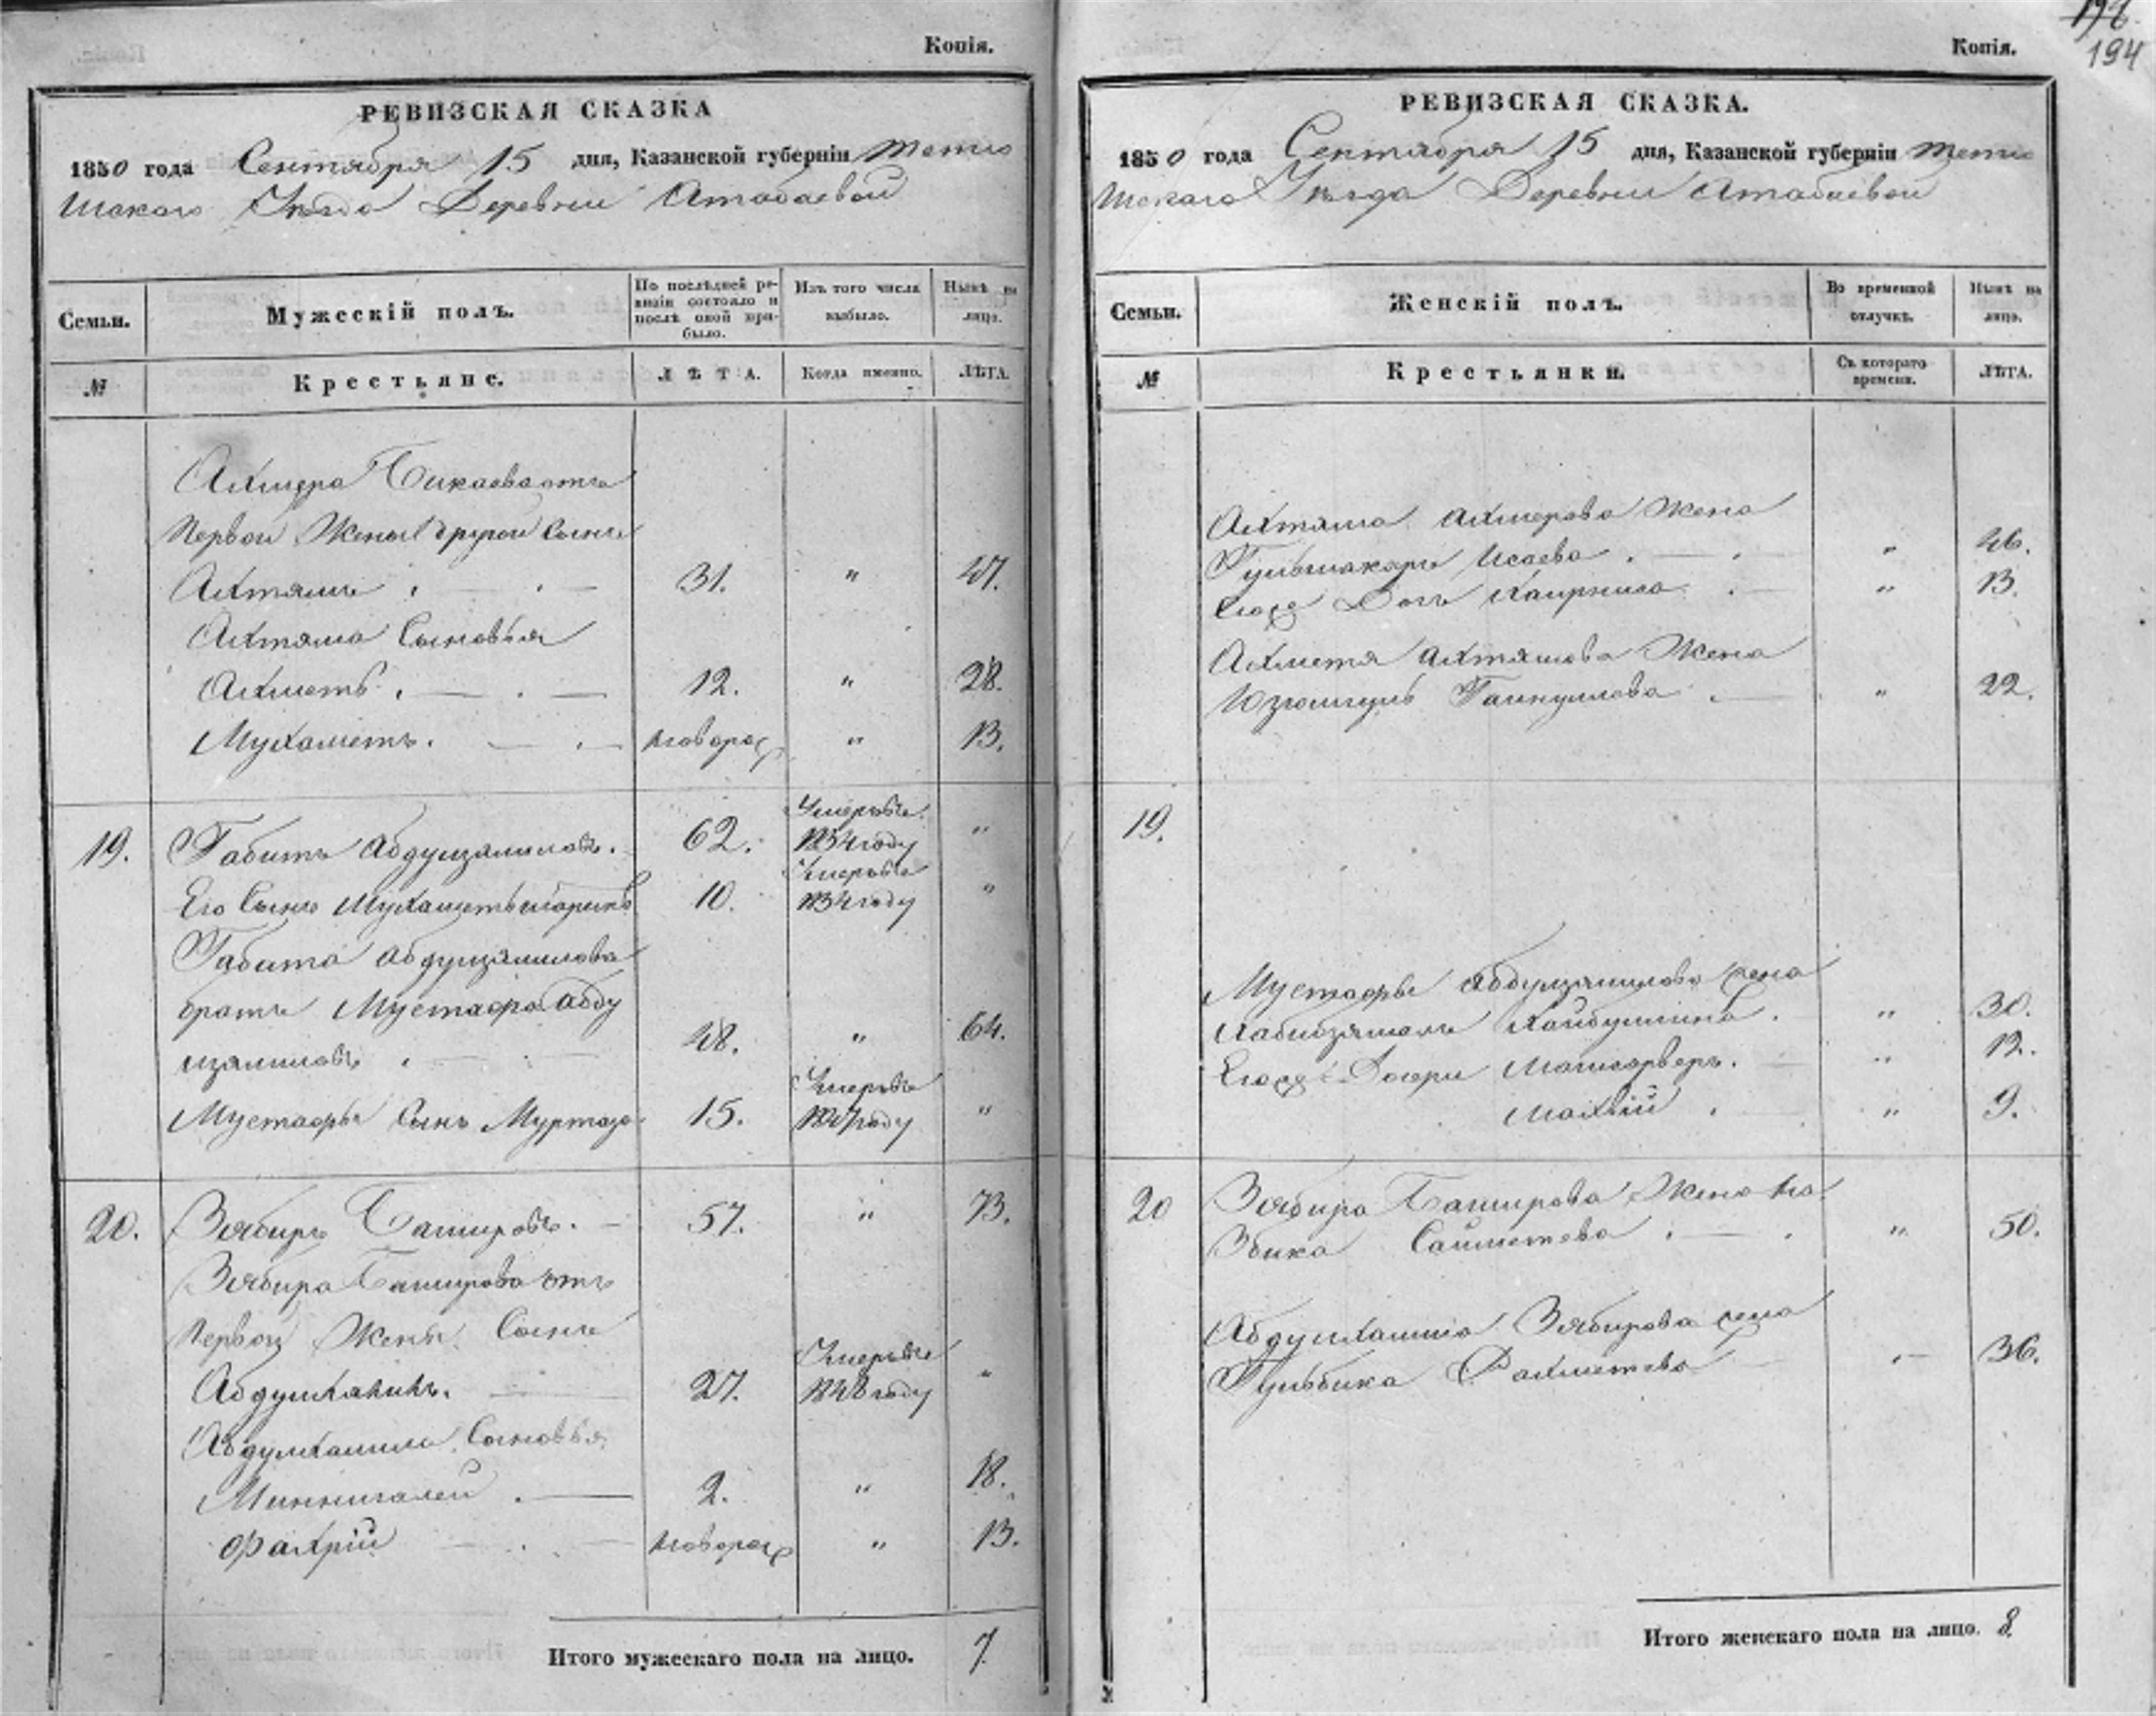 Копія.
РЕВИЗСКАЯ СКАЗКА
1850 года Сентября 15 дня, Казанской губерніи Тетю
шскаго Уѣзда Деревни Атабаевой
Семьи.
Мужескій полъ.
По послѣдней ре-
визіи состояло и
послѣ оной при-
было.
Изъ того числа
выбыло.
Нынѣ на
лицо.
№
Крестьяне.
ЛѢТА.
Когда именно.
ЛѢТА.
Ахмера Бикаева отъ
Первой Жены Другой Сынъ
Ахтямъ 31. " 47.
Ахтяма Сыновья
Ахметь 12. " 28.
Мухаметь новорож " 13.
19. Габитъ Абдулзялиловъ. 62. Умеръ въ 1834 году "
Его Сынъ 10. Умеръ въ 1834 году "
Габита Абдулзялилова
братъ Мустафа Абду
лзялиловъ 48. " 64.
Мустафы Сынъ Муртаза 15. Умеръ въ 1847 году "
20. Зябиръ Башировъ. 57. " 73.
Зябира Баширова отъ
Первой Жены Сынъ
Абдулхакимъ. 27. Умеръ въ 1848 году "
Абдулхакима Сыновья
Миннигалей 2. " 18.
Фахрій новорож " 13.
Итого мужескаго пола на лицо. 7.
194
Копія.
РЕВИЗСКАЯ СКАЗКА.
1850 года Сентября 15 дня, Казанской губерніи Тетю
шскаго Уѣзда Деревни Атабаевой
Семьи.
Женскій полъ.
Во временной
отлучкѣ.
Нынѣ на
лицо.
№
Крестьянки.
Съ котораго
времени.
ЛѢТА.
Ахтяма Ахмерова Жена
Гульшакаръ Исаева " 46.
Ево Дочь " 13.
Ахметя Ахтямова Жена
Юзюмгуль " 22.
19.
Мустафы Абдулзялилова Жена
Хабибзямалъ Хайбуллина " 30.
Дочери " 12.
" 9.
20 Зябира Баширова Жена
бика Сайметева " 50.
Абдулхакима Зябирова Жена
Гульбика Рахметева " 36.
Итого женскаго пола на лицо. 8.